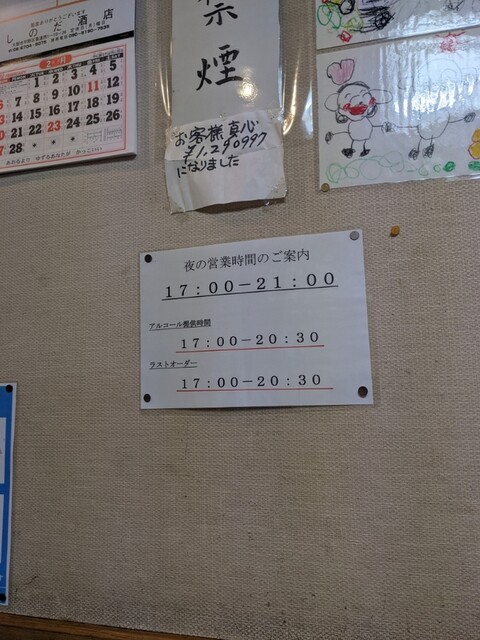 しのだ酒店
2
1 2 3 4 5
7 8 9 10 11 12
14 15 16 17 18 19
21 22 23 24 25 26
28
禁
煙
お客様真心
¥1,290997
になりました
夜の営業時間のご案内
17：00－21：00
アルコール提供時間
17：00－20：30
ラストオーダー
17：00－20：30